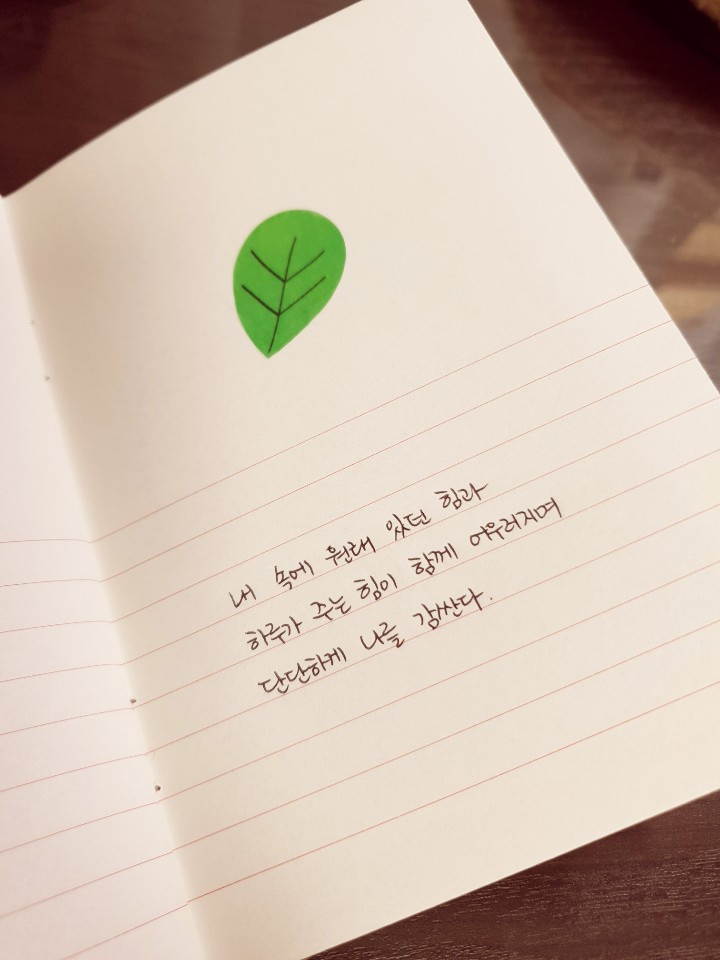 내 속에 원래 있던 힘과
하루가 주는 힘이 함께 어우러지며
단단하게 나를 감싼다.